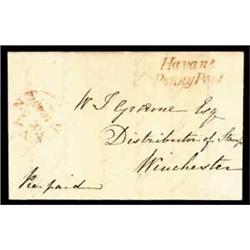 Havant
Penny Post
W J Græme Esq
Distributor of Stamps
Winchester
Pre paid